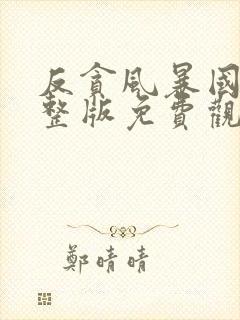 反貪風暴國
整版免費觀
鄭晴晴